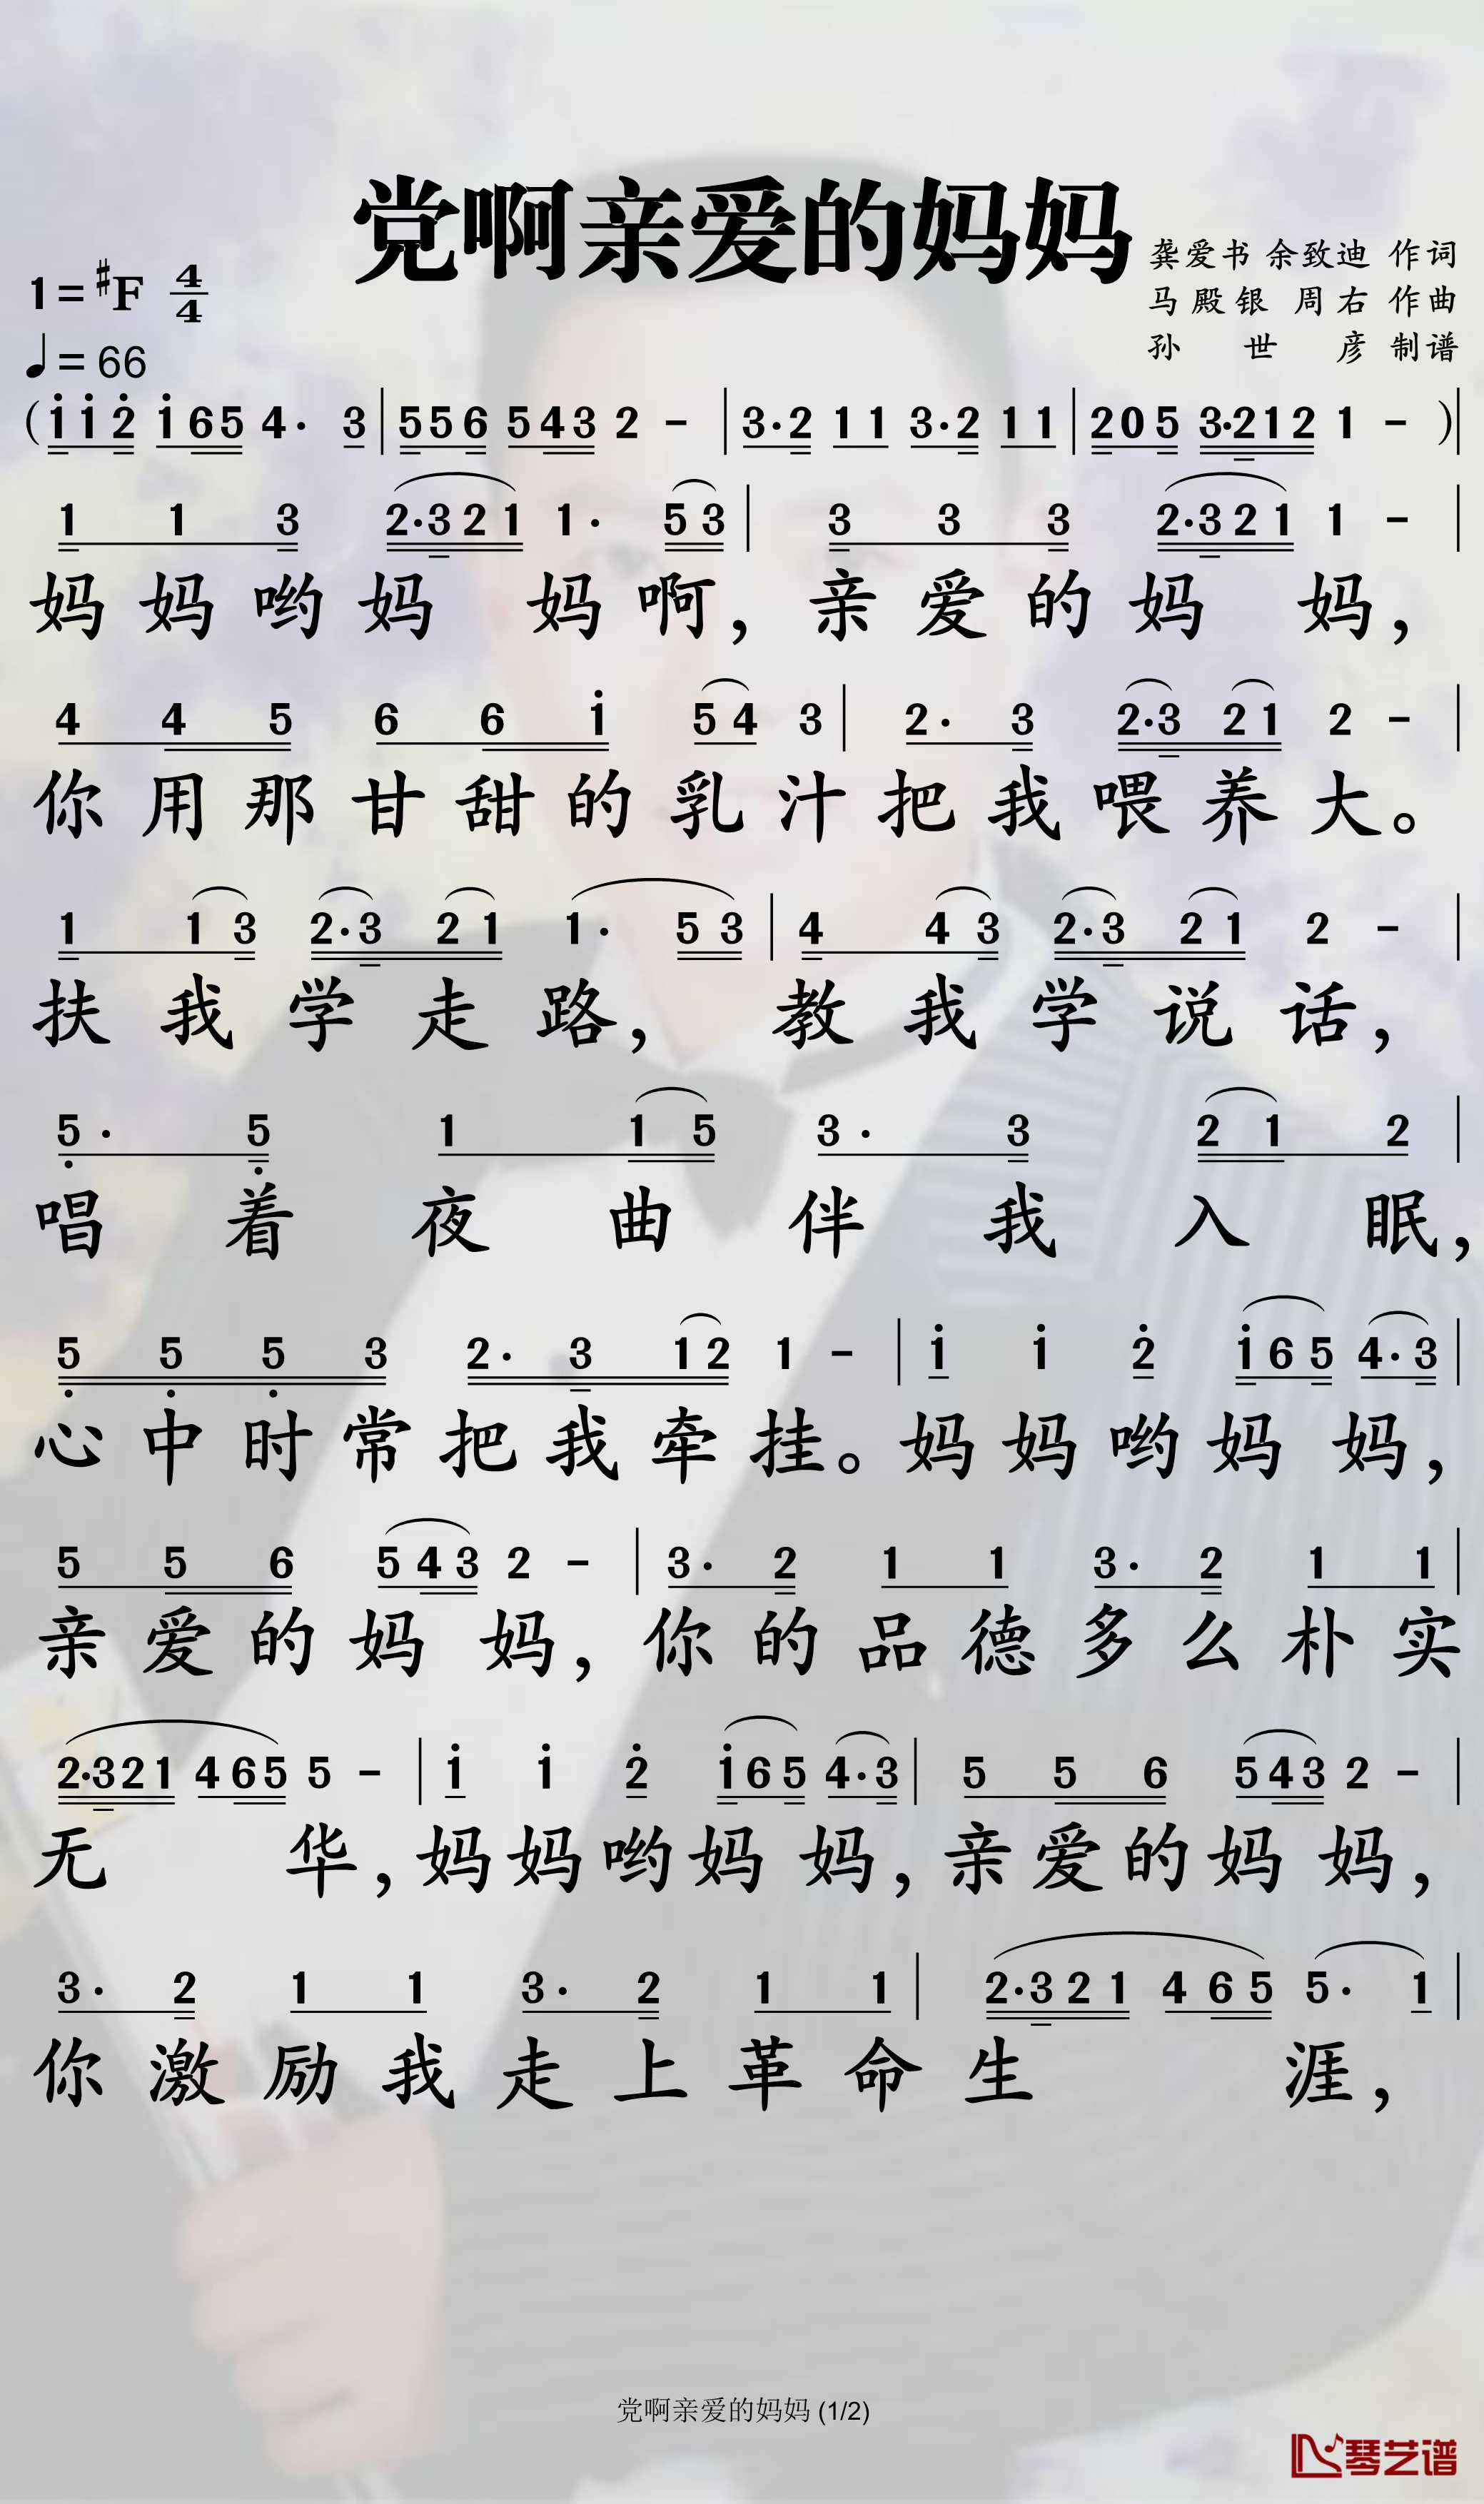 党啊亲爱的妈妈
龚爱书 余致迪 作词
1=#F 4/4
马殿银 周右 作曲
♩=66
孙世彦 制谱
(i i 2̇ i 6 5 4· 3 | 5 5 6 5 4 3 2 - | 3·2 1 1 3·2 1 1 | 2 0 5 3·2 1 2 1 - )|
1 1 3 2·3 2 1 1· 5 3 | 3 3 3 2·3 2 1 1 - |
妈妈哟妈 妈啊，亲爱的妈 妈，
4 4 5 6 6 i 5 4 3 | 2· 3 2·3 2 1 2 - |
你用那甘甜的乳汁把我喂养大。
1 1 3 2·3 2 1 1· 5 3 | 4 4 3 2·3 2 1 2 - |
扶我学走路，教我学说话，
5̣· 5̣ 1 1 5 3· 3 2 1 2 |
唱着夜曲伴我入眠，
5̣ 5̣ 5̣ 3 2· 3 1 2 1 - | i i 2̇ i 6 5 4·3 |
心中时常把我牵挂。妈妈哟妈 妈，
5 5 6 5 4 3 2 - | 3· 2 1 1 3· 2 1 1 |
亲爱的妈 妈，你的品德多么朴实
2·3 2 1 4 6 5 5 - | i i 2̇ i 6 5 4·3 | 5 5 6 5 4 3 2 - |
无 华，妈妈哟妈 妈，亲爱的妈 妈，
3· 2 1 1 3· 2 1 1 | 2·3 2 1 4 6 5 5· 1 |
你激励我走上革命生 涯，
党啊亲爱的妈妈 (1/2)
琴艺谱